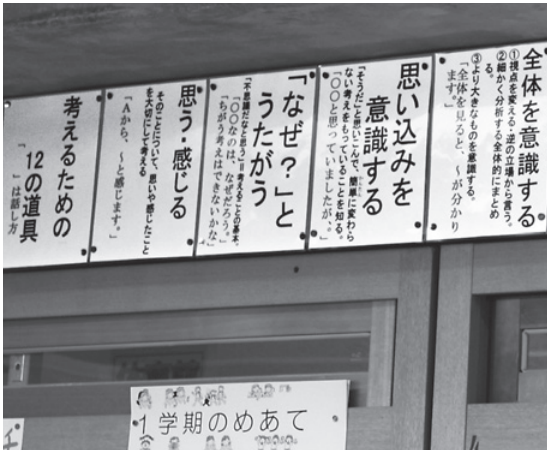 全体を意識する
①視点を変える・逆の立場から言う。
②細かく分析する全体的にまとめ
る。
③より大きなものを意識する。
「全体を見ると、～が分かり
ます。」
思い込みを
意識する
「そうだこと思いこんで、簡単に変わら
ない考えをもっていることを知る。
「〇〇と思っていましたが、」
「なぜ？」と
うたがう
「不思議だなと思う」＝考えることの基本。
「〇〇なのは、なぜだろう。」
「ちがう考えはできないかな」
思う・感じる
そのことについて、思いや感じたこと
を大切にして考える
「Aから、～と感じます。」
考えるための
12の道具
「　」は話し方
1学期のめあて